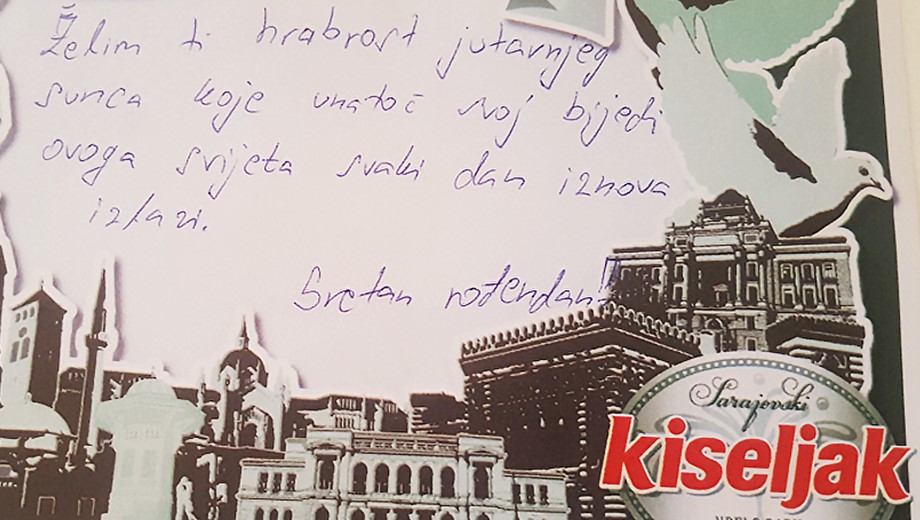 Želim ti hrabrost jutarnjeg
sunca koje unatoč svoj bijedi
ovoga svijeta svaki dan iznova
izlazi.
Sretan rođendan!!
Sarajevski
kiseljak